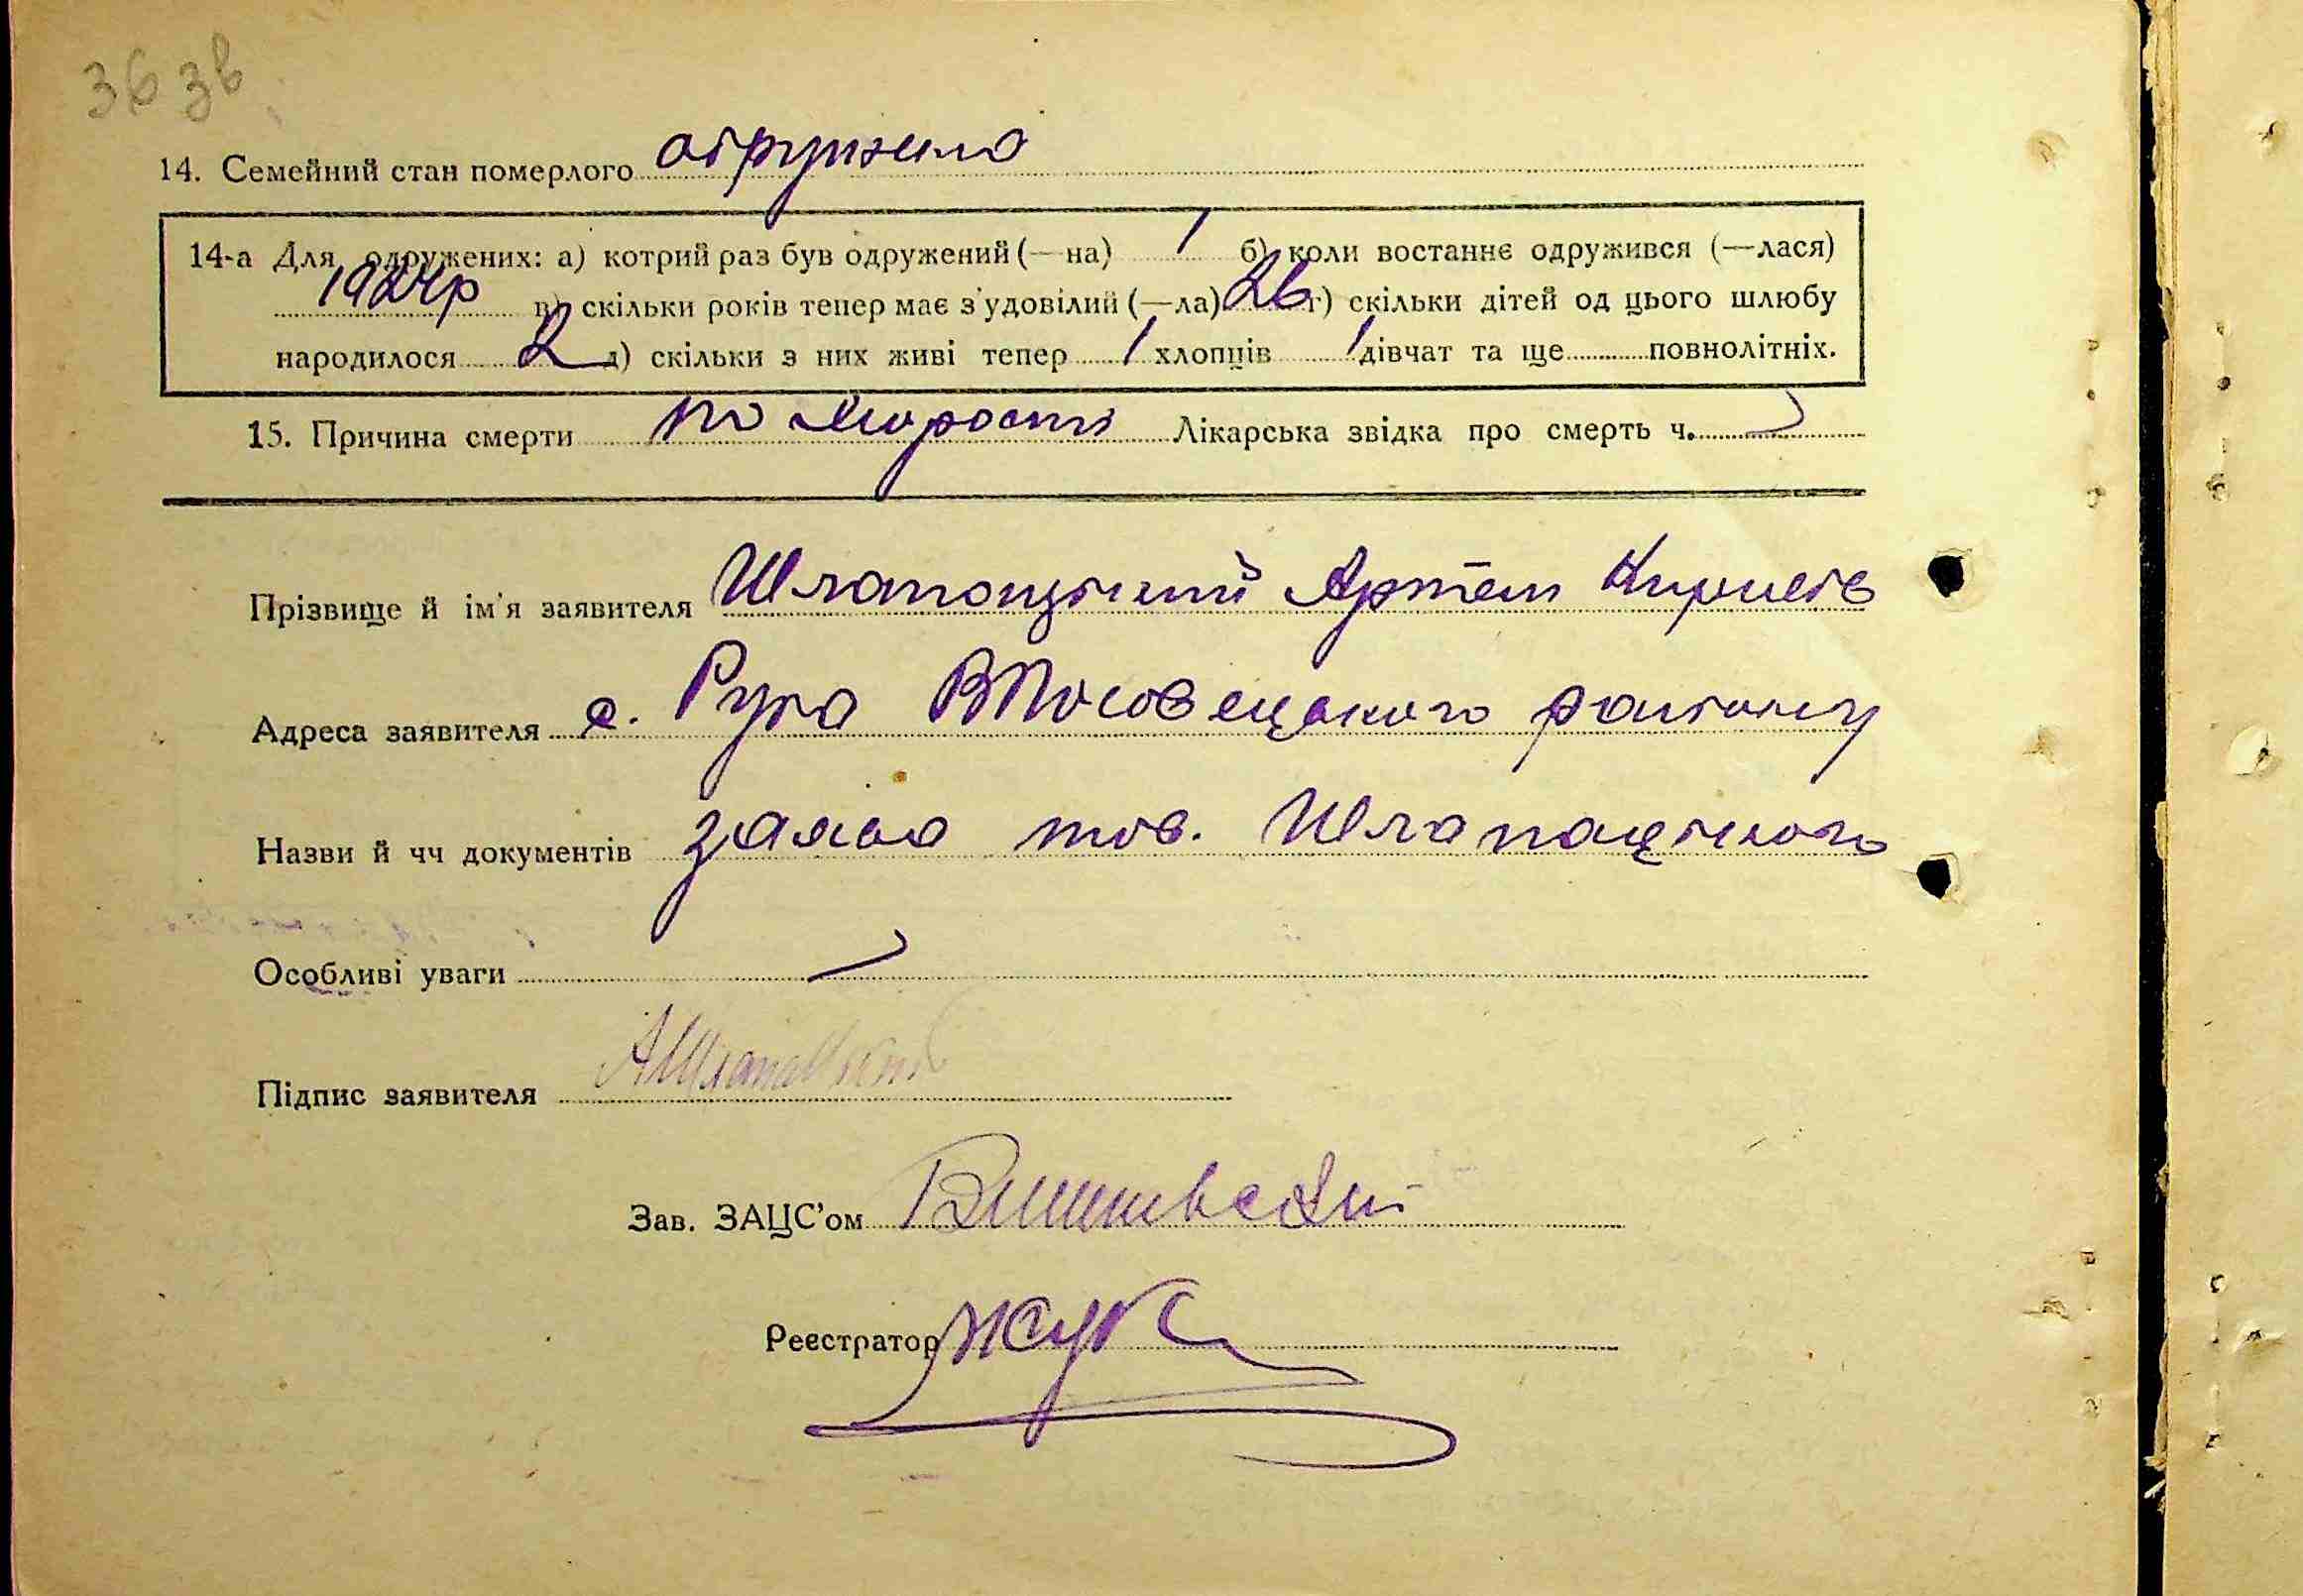 36 зв
14. Семейний стан померлого одружена
14-а Для одружених: а) котрий раз був одружений (—на) 1 б) коли востаннє одружився (—лася)
1924р в) скільки років тепер має з'удовілий (—ла) 26 г) скільки дітей од цього шлюбу
народилося 2 д) скільки з них живі тепер 1 хлопців 1 дівчат та ще повнолітніх.
15. Причина смерти по Лікарська звідка про смерть ч.
Прізвище й ім'я заявителя Шлапацький Артем Кирилів
Адреса заявителя с. Руда ВПоловецького району
Назви й чч документів заява тов. Шлапацького
Особливі уваги
Підпис заявителя
Зав. ЗАЦС'ом Вишневський
Реєстратор Жук